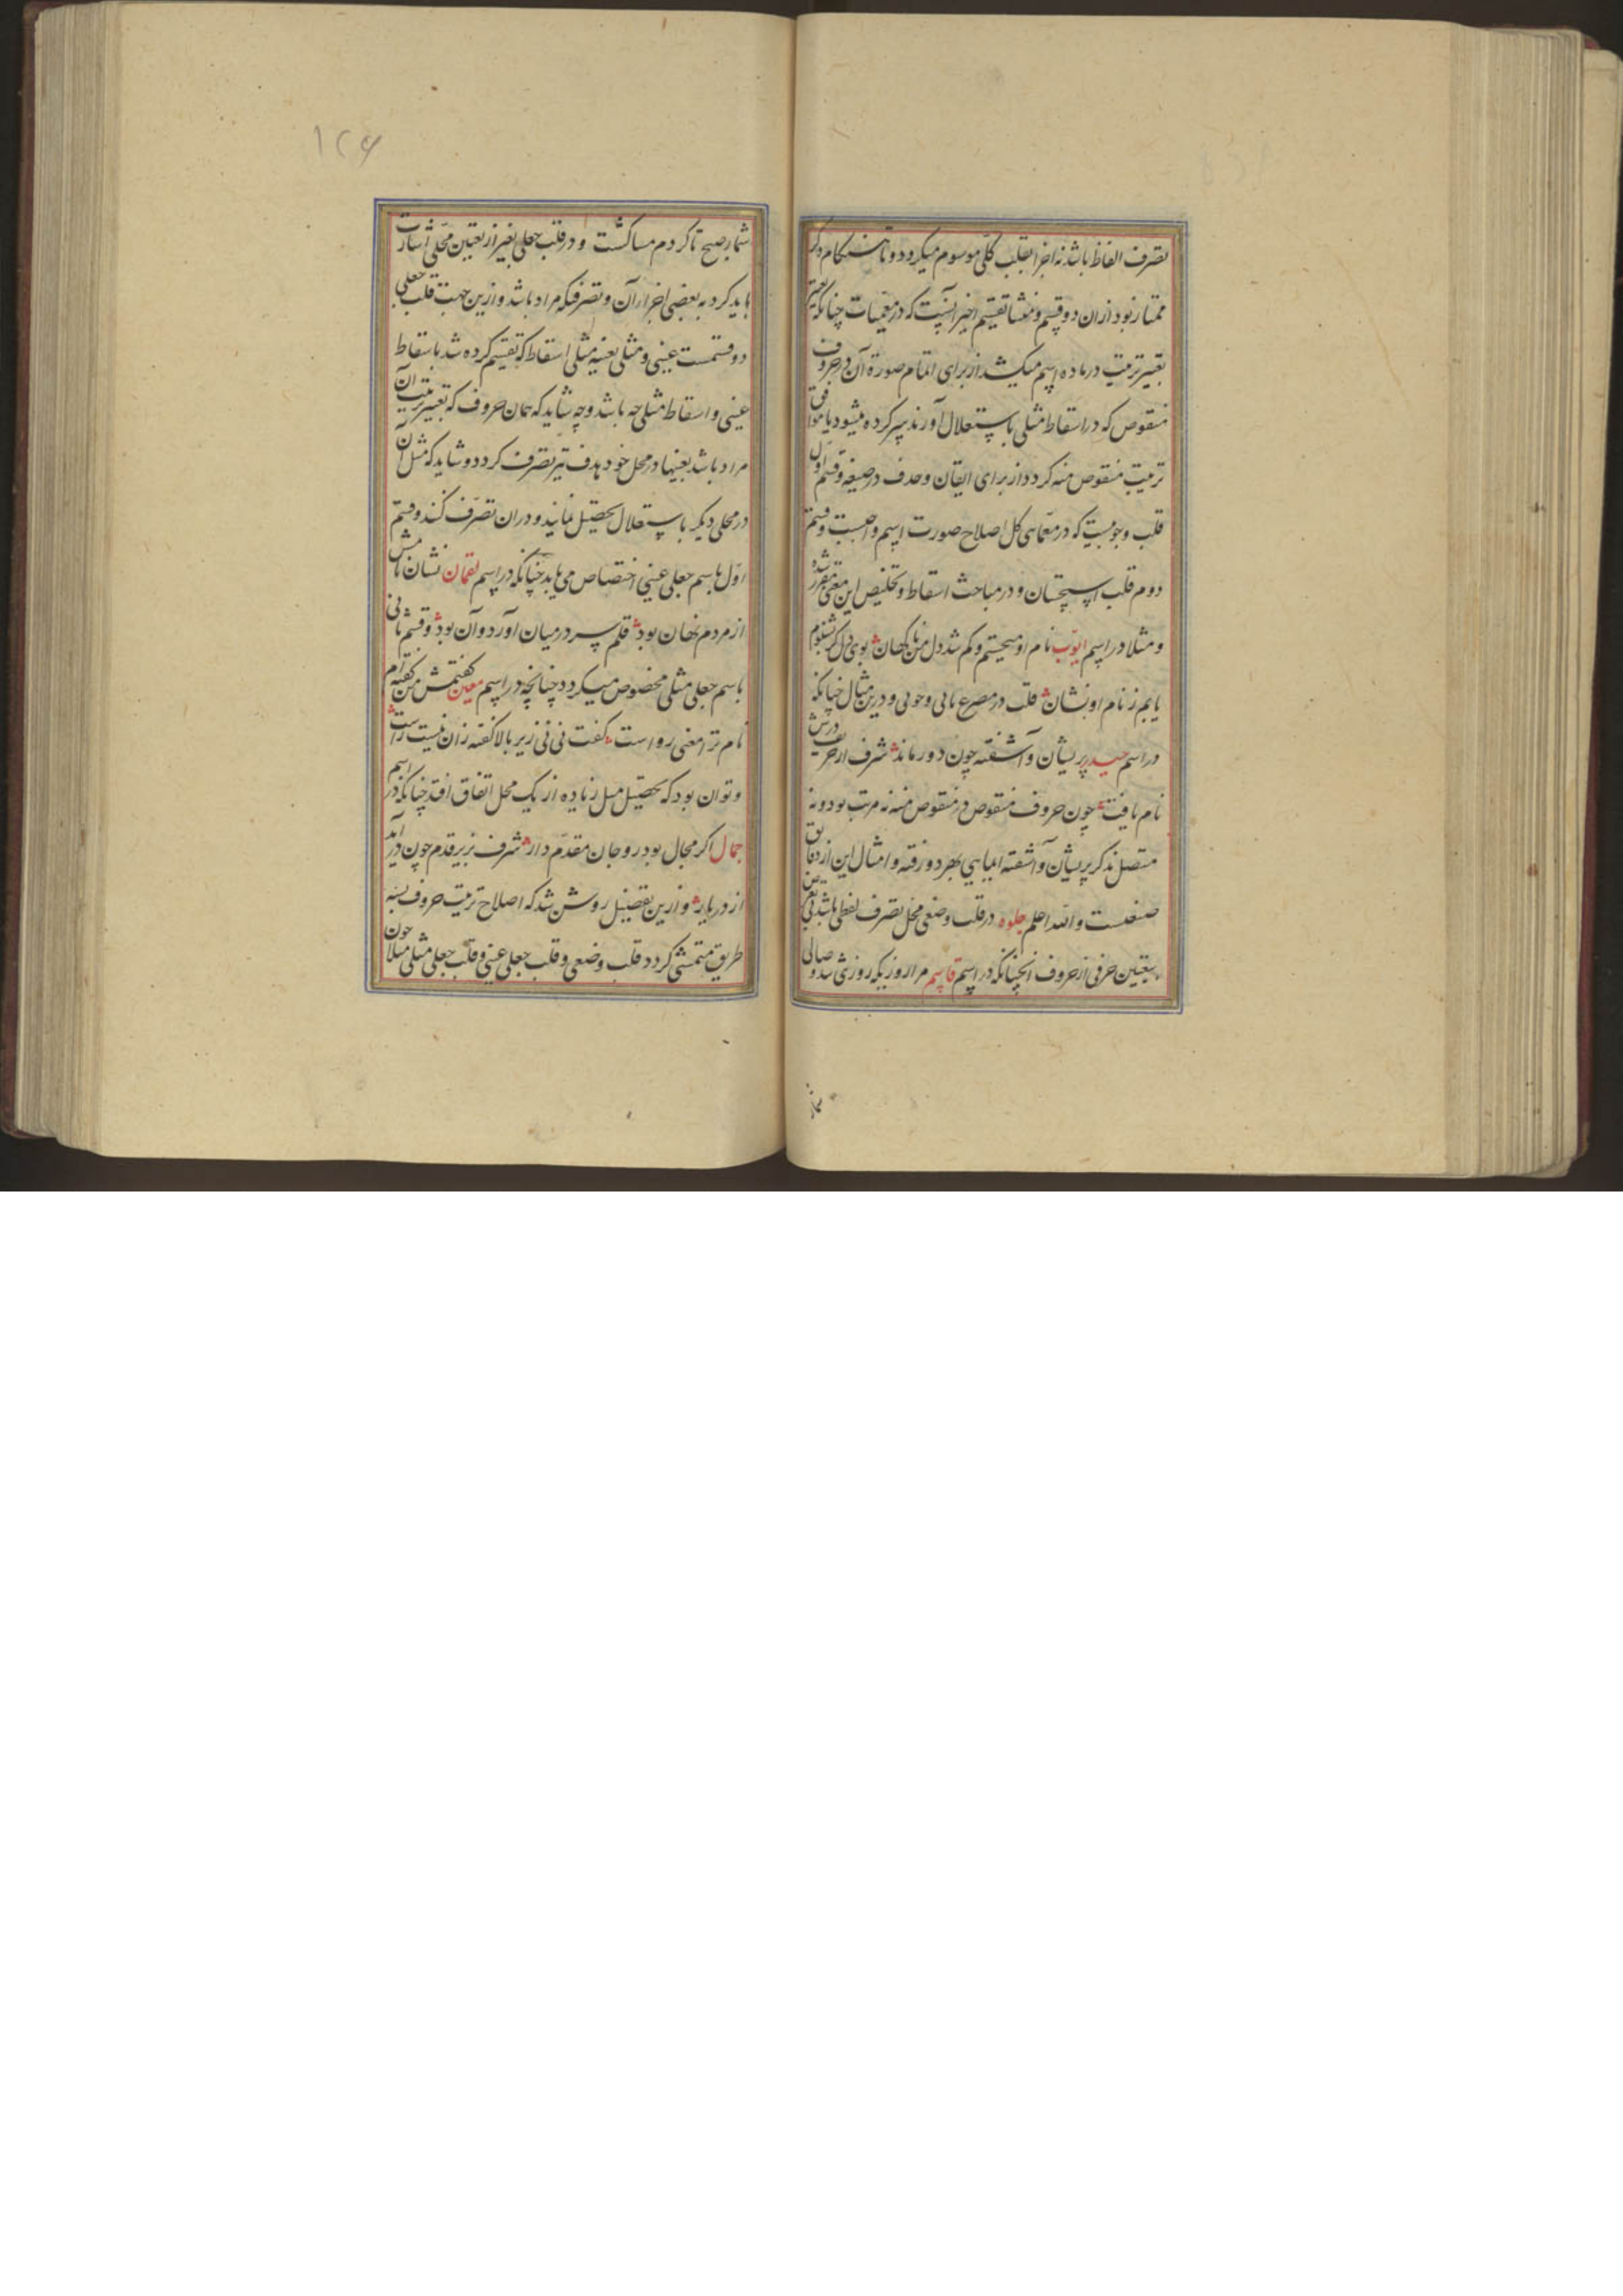 تصرف الفاظ باشد نه اجزا بقلب کلی موسوم میکردد و تا هنکام ذکر
ممتاز نبود ازان دو قسم و منشا تقسیم اخیر آنست که در معمیات چنانکه تغییر
بتغییر ترتیب در ماده اسم میکشد از برای اتمام صورة آن در حروف
منقوص که در اسقاط مثلی باستعلال آورند نیز کرده میشود یا موافق
ترتیب منقوص منه کردد از برای ایقان و حذف در صیغه و قسم اول
قلب وجوبیست که در معمای کل اصلاح صورت اسم واجبست و قسم
دوم قلب استحسان و در مباحث اسقاط و تخلیص این معنی مقرر شده
و مثلا در اسم ایوب نام او میجستم و کم شد دل من ناکهان بوی دل کر بشنوم
یابم ز نام او نشان قلب در مصرع ثانی وجوبی و درین مثال چنانکه
در اسم حیدر پریشان و آشفته چون دور ماند شرف از حریف درش
نام یافت چون حروف منقوص در منقوص منه نه مرتب بود و نه
متصل ذکر پریشان و آشفته ایمایی بهر دو رفته و امثال این از دقایق
صنعتست والله اعلم جلوه در قلب وضعی محل تصرف لفظی باشد بی تعرض
بتعیین حرفی از حروف آنچنانکه در اسم قاسم مرا روزیکه روزی شد وصالی
شمار
۱۲۶
شمار صبح تا کردم مسا کشت و در قلب جعلی بغیر از تعیین محلی اشارت
باید کرد به بعضی اجزاء آن و تصرفیکه مراد باشد و ازین جهت قلب جعلی
دو قسمست عینی و مثلی بعینه مثلی اسقاط که تقسیم کرده شد باسقاط
عینی و اسقاط مثلی چه باشد و چه شاید که همان حروف که تغییر ترتیب آن
مراد باشد بعینها در محل خود هدف تیر تصرف کردد و شاید که مثل آن
در محلی دیکر باستعلال تحصیل نمایند و دران تصرف کنند و قسم
اول باسم جعلی عینی اختصاص می یابد چنانکه در اسم لقمان نشان نامش
از مردم نهان بود قلم سر در میان آورد و آن بود و قسم ثانی
باسم جعلی مثلی مخصوص میکردد چنانچه در اسم معین کفتمش من کفته ام
نام ترا معنی رواست کفت نی نی زیر بالا کفته زان نیست راست
و توان بود که تحصیل مثل زیاده از یک محل اتفاق افتد چنانکه در اسم
جمال اکر مجال بود رو جان مقدم دار شرف بزیر قدم چون در آید
از در یار و ازین تفصیل روشن شد که اصلاح ترتیب حروف بسه
طریق متمشی کردد قلب وضعی و قلب جعلی عینی و قلب جعلی مثلی مثلا چون